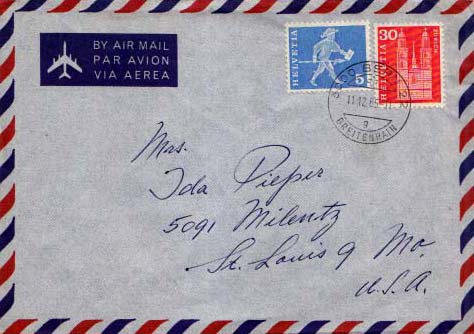 BY AIR MAIL
PAR AVION
VIA AEREA
HELVETIA
5
30
HELVETIA
ZUERICH
11.12.65
9
BREITENRAIN
Mrs.
Ida Pieper
5091 Milentz
St. Louis 9 Mo.
U.S.A.